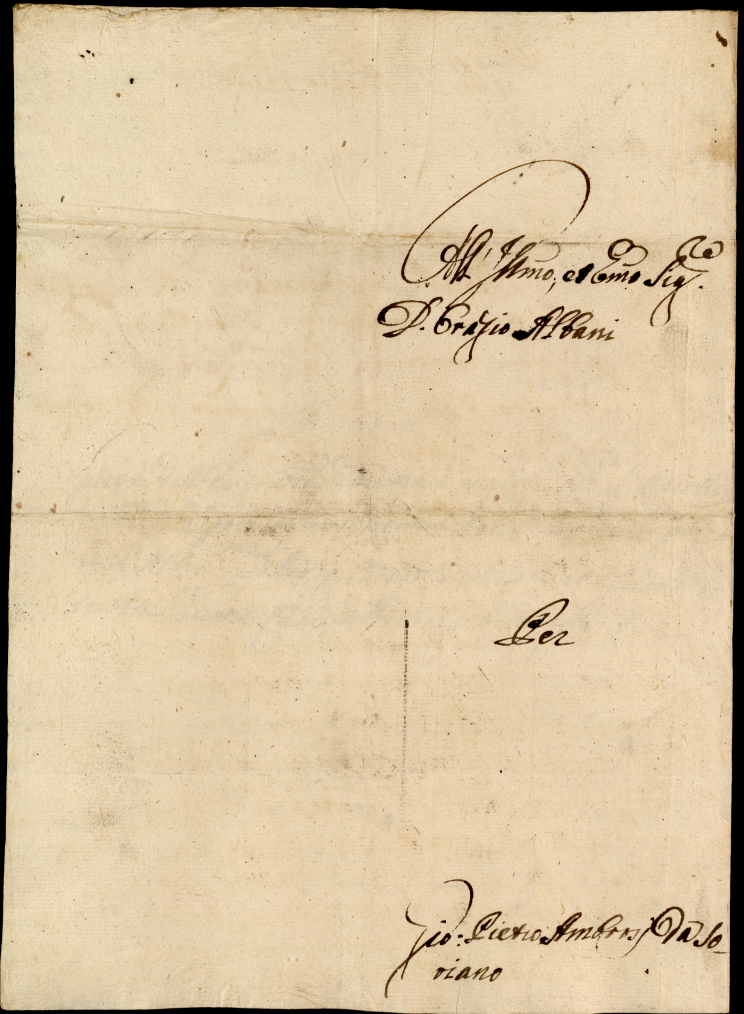 All' Illmo, et Emo Sig.re
D. Orazio Albani
Per
Gio: Pietro Ambrosj Da So-
riano